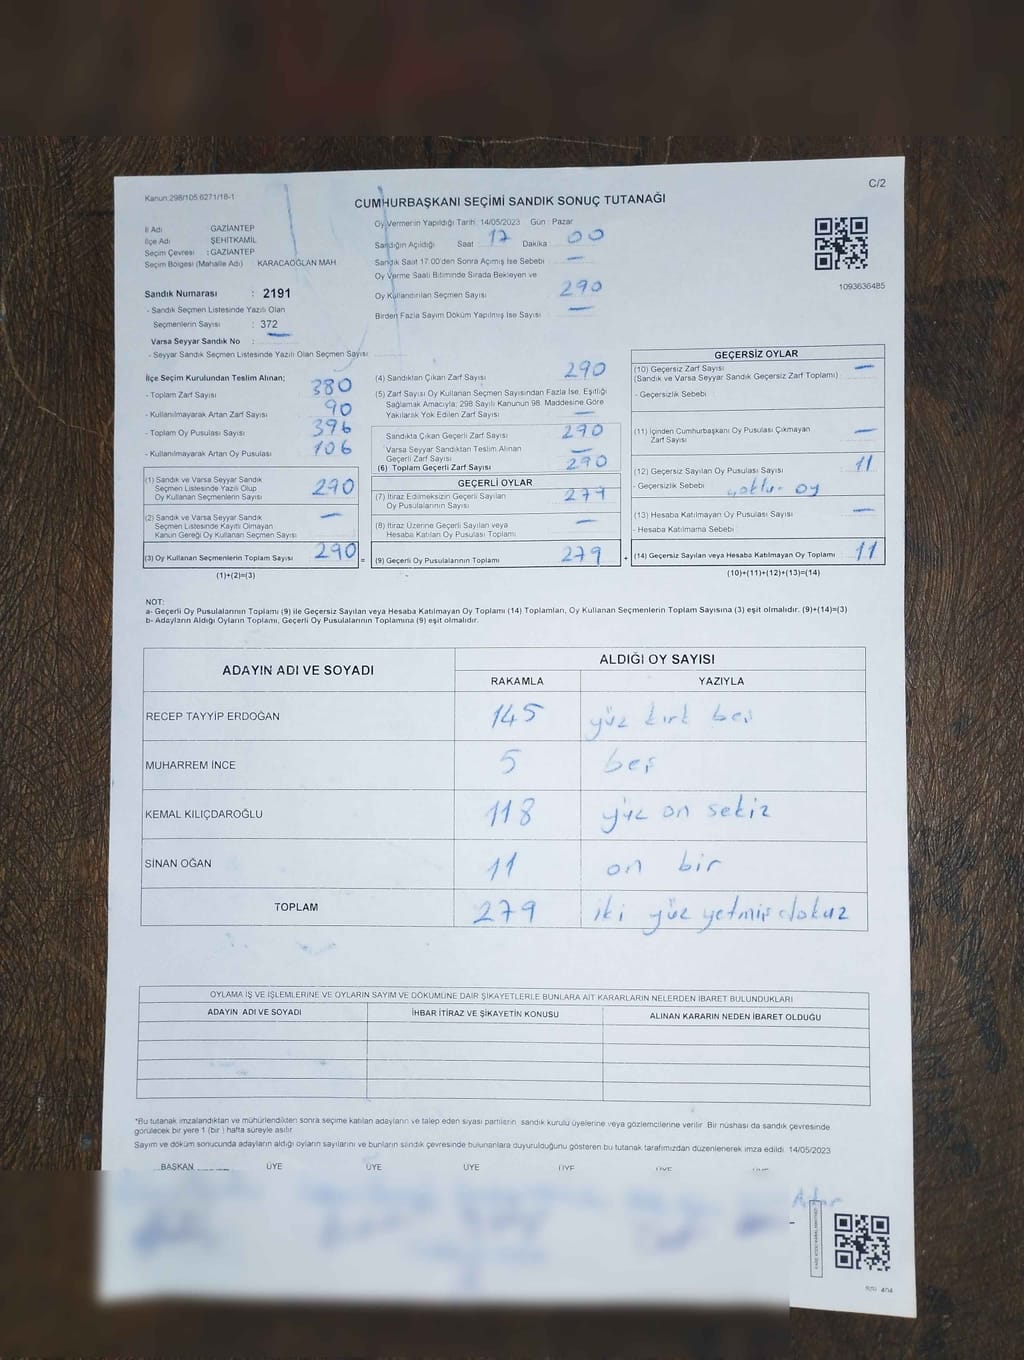 C/2
Kanun:298/105.6271/18-1
CUMHURBAŞKANI SEÇİMİ SANDIK SONUÇ TUTANAĞI
İl Adı GAZİANTEP
İlçe Adı ŞEHİTKAMİL
Seçim Çevresi : GAZİANTEP
Seçim Bölgesi (Mahalle Adı) KARACAOĞLAN MAH
Sandık Numarası : 2191
- Sandık Seçmen Listesinde Yazılı Olan
Seçmenlerin Sayısı : 372
Varsa Seyyar Sandık No :
- Seyyar Sandık Seçmen Listesinde Yazılı Olan Seçmen Sayısı
Oy Vermenin Yapıldığı Tarih: 14/05/2023 Gün : Pazar
Sandığın Açıldığı Saat 17 Dakika 00
Sandık Saat 17.00'den Sonra Açılmış İse Sebebi —
Oy Verme Saati Bitiminde Sırada Bekleyen ve
Oy Kullandırılan Seçmen Sayısı 290
Birden Fazla Sayım Döküm Yapılmış İse Sayısı —
1093636485
İlçe Seçim Kurulundan Teslim Alınan;
- Toplam Zarf Sayısı 380
- Kullanılmayarak Artan Zarf Sayısı 90
- Toplam Oy Pusulası Sayısı 396
- Kullanılmayarak Artan Oy Pusulası 106
(1) Sandık ve Varsa Seyyar Sandık
Seçmen Listesinde Yazılı Olup
Oy Kullanan Seçmenlerin Sayısı 290
(2) Sandık ve Varsa Seyyar Sandık
Seçmen Listesinde Kayıtlı Olmayan
Kanun Gereği Oy Kullanan Seçmen Sayısı —
(3) Oy Kullanan Seçmenlerin Toplam Sayısı 290 =
(1)+(2)=(3)
(4) Sandıktan Çıkan Zarf Sayısı 290
(5) Zarf Sayısı Oy Kullanan Seçmen Sayısından Fazla İse, Eşitliği
Sağlamak Amacıyla; 298 Sayılı Kanunun 98. Maddesine Göre
Yakılarak Yok Edilen Zarf Sayısı —
Sandıkta Çıkan Geçerli Zarf Sayısı 290
Varsa Seyyar Sandıktan Teslim Alınan
Geçerli Zarf Sayısı —
(6) Toplam Geçerli Zarf Sayısı 290
GEÇERLİ OYLAR
(7) İtiraz Edilmeksizin Geçerli Sayılan
Oy Pusulalarının Sayısı 279
(8) İtiraz Üzerine Geçerli Sayılan veya
Hesaba Katılan Oy Pusulası Toplamı —
(9) Geçerli Oy Pusulalarının Toplamı 279 +
GEÇERSİZ OYLAR
(10) Geçersiz Zarf Sayısı —
(Sandık ve Varsa Seyyar Sandık Geçersiz Zarf Toplamı)
- Geçersizlik Sebebi :
(11) İçinden Cumhurbaşkanı Oy Pusulası Çıkmayan
Zarf Sayısı —
(12) Geçersiz Sayılan Oy Pusulası Sayısı 11
- Geçersizlik Sebebi oy
(13) Hesaba Katılmayan Oy Pusulası Sayısı —
- Hesaba Katılmama Sebebi :
(14) Geçersiz Sayılan veya Hesaba Katılmayan Oy Toplamı 11
(10)+(11)+(12)+(13)=(14)
NOT:
a- Geçerli Oy Pusulalarının Toplamı (9) ile Geçersiz Sayılan veya Hesaba Katılmayan Oy Toplamı (14) Toplamları, Oy Kullanan Seçmenlerin Toplam Sayısına (3) eşit olmalıdır. (9)+(14)=(3)
b- Adayların Aldığı Oyların Toplamı, Geçerli Oy Pusulalarının Toplamına (9) eşit olmalıdır.
ADAYIN ADI VE SOYADI ALDIĞI OY SAYISI
RAKAMLA YAZIYLA
RECEP TAYYİP ERDOĞAN 145 yüz kırk beş
MUHARREM İNCE 5 beş
KEMAL KILIÇDAROĞLU 118 yüz on sekiz
SİNAN OĞAN 11 on bir
TOPLAM 279 iki yüz yetmiş dokuz
OYLAMA İŞ VE İŞLEMLERİNE VE OYLARIN SAYIM VE DÖKÜMÜNE DAİR ŞİKAYETLERLE BUNLARA AİT KARARLARIN NELERDEN İBARET BULUNDUKLARI
ADAYIN ADI VE SOYADI İHBAR İTİRAZ VE ŞİKAYETİN KONUSU ALINAN KARARIN NEDEN İBARET OLDUĞU
*Bu tutanak imzalandıktan ve mühürlendikten sonra seçime katılan adayların ve talep eden siyasi partilerin sandık kurulu üyelerine veya gözlemcilerine verilir. Bir nüshası da sandık çevresinde
görülecek bir yere 1 (bir ) hafta süreyle asılır.
Sayım ve döküm sonucunda adayların aldığı oyların sayılarını ve bunların silindik çevresinde bulunanlara duyurulduğunu gösteren bu tutanak tarafımızdan düzenlenerek imza edildi. 14/05/2023
BAŞKAN ÜYE ÜYE ÜYE ÜYE ÜYE ÜYE